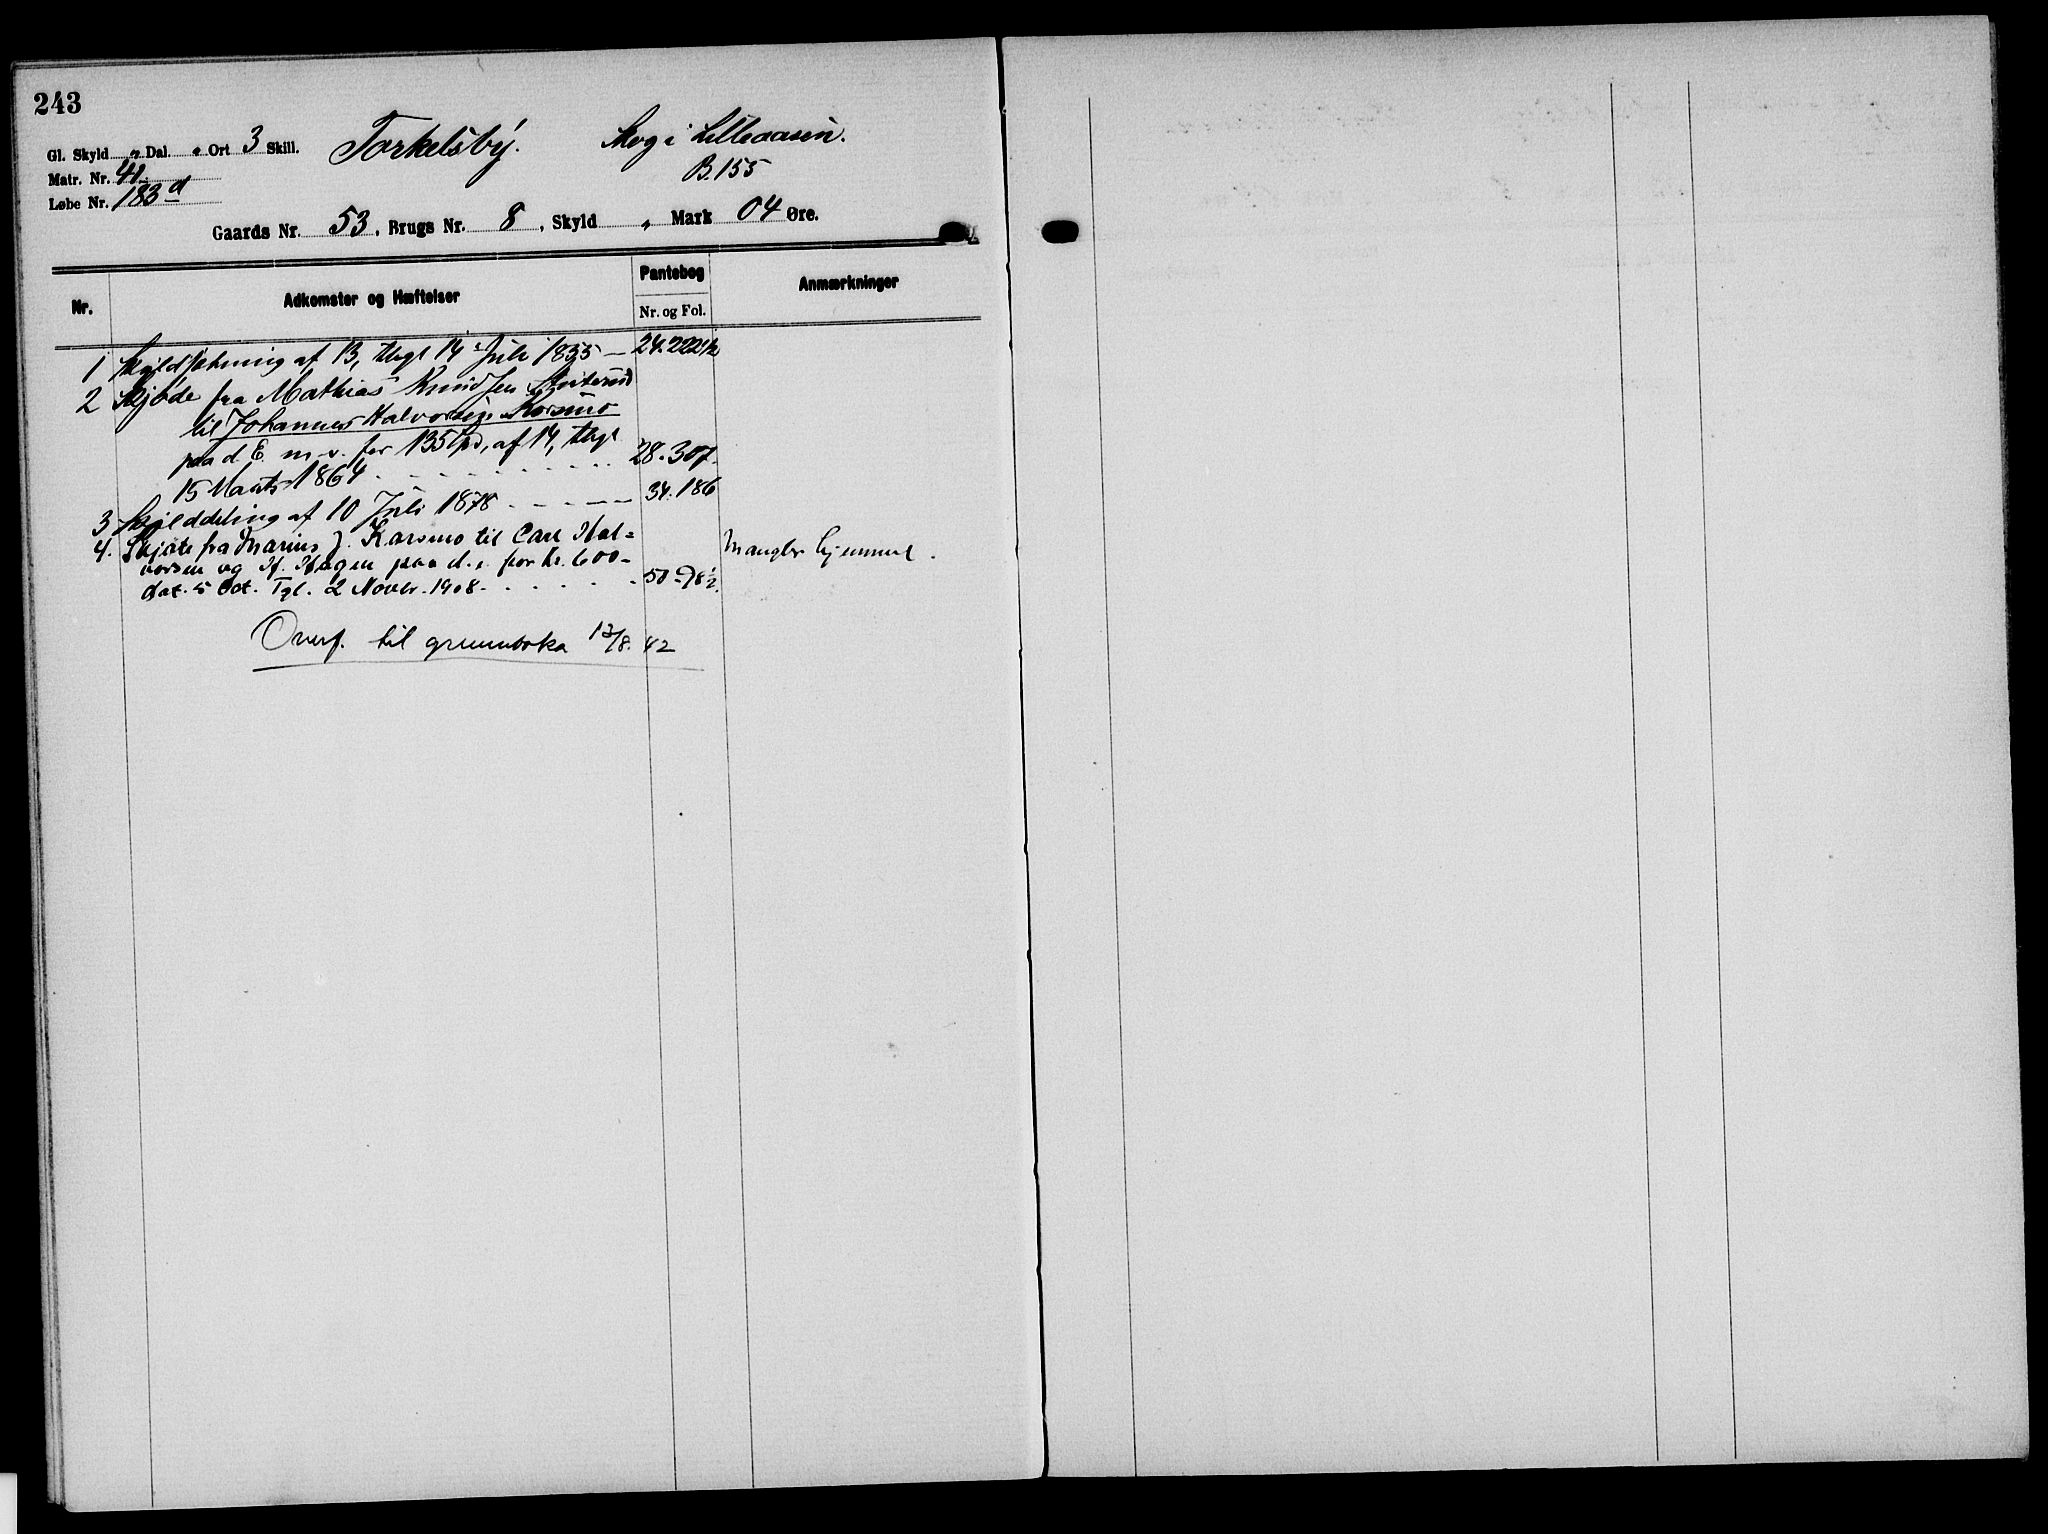 243
Gl. Skyld " Dal. " Ort 3 Skill. Torkelsby. Skog i Lilleaasen.
Matr. Nr. 41. B. 155
Løbe Nr. 183 d
Gaards Nr. 53, Brugs Nr. 8, Skyld " Mark 04 Øre.
Nr. Adkomster og Hæftelser Pantebog Anmærkninger
Nr. og Fol.
1 Skyldsætning af 13, thgl 14 Juli 1855 — 24. 222 1/2
2 Skjøde fra Mathias Knudsen
til Johannes Halvorsen Korsmo
paa d. E. m. v. for 135 Spd, af 14, thgl
15 Marts 1864 28. 307.
3 Skylddeling af 10 Juli 1878 34. 186
4. Skjøte fra Marius J. Korsmo til Carl Hal-
vorsen og H. Hagen paa d. e. for kr. 600- Mangler hjemmel.
dat. 5 Oct. Tgl. 2 Novbr. 1908 - 50 - 98 1/2.
Overf. til grunnboka 12/8. 42